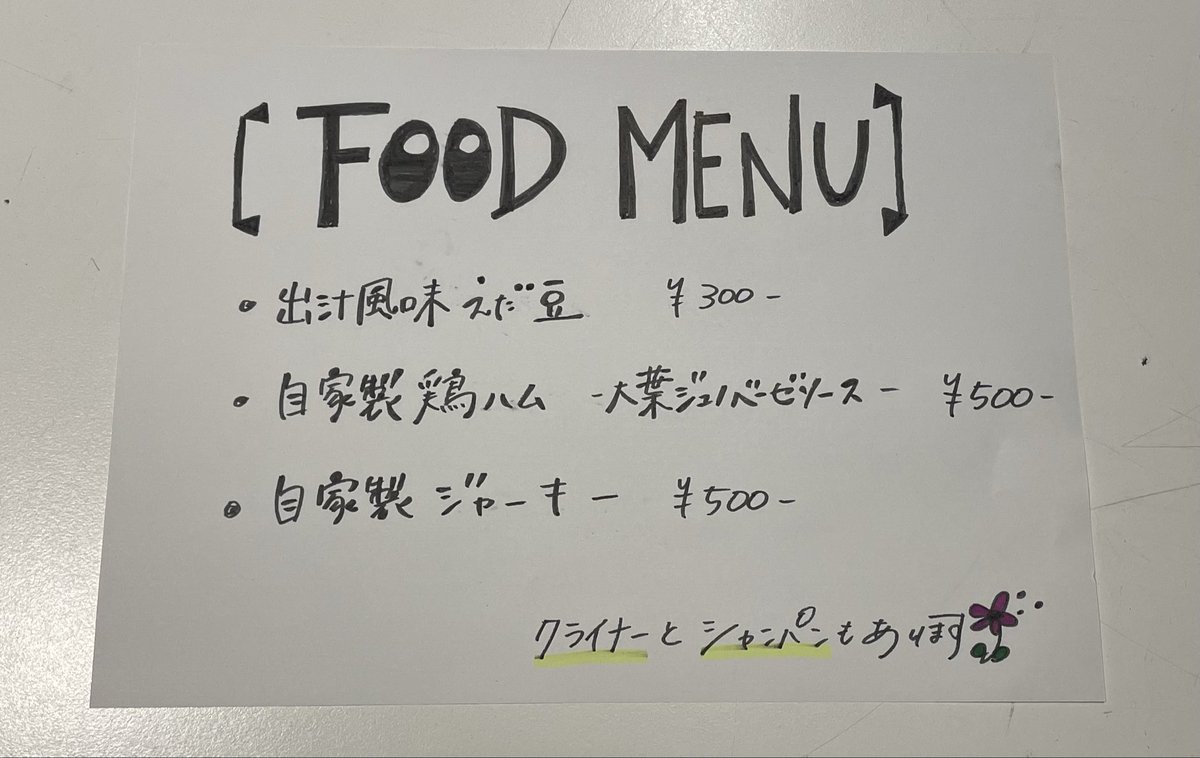 [FOOD MENU]
• 出汁風味 えだ豆 ¥300-
• 自家製 鶏ハム -大葉ジェノベーゼソース- ¥500-
• 自家製 ジャーキー ¥500-
クライナーとシャンパンもあります